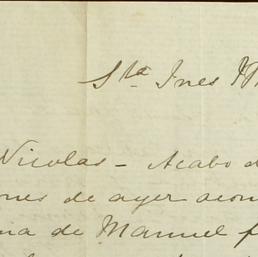 Sta. Ines
Nicolas - Acabo d
ones de ayer acom
na de Manuel f